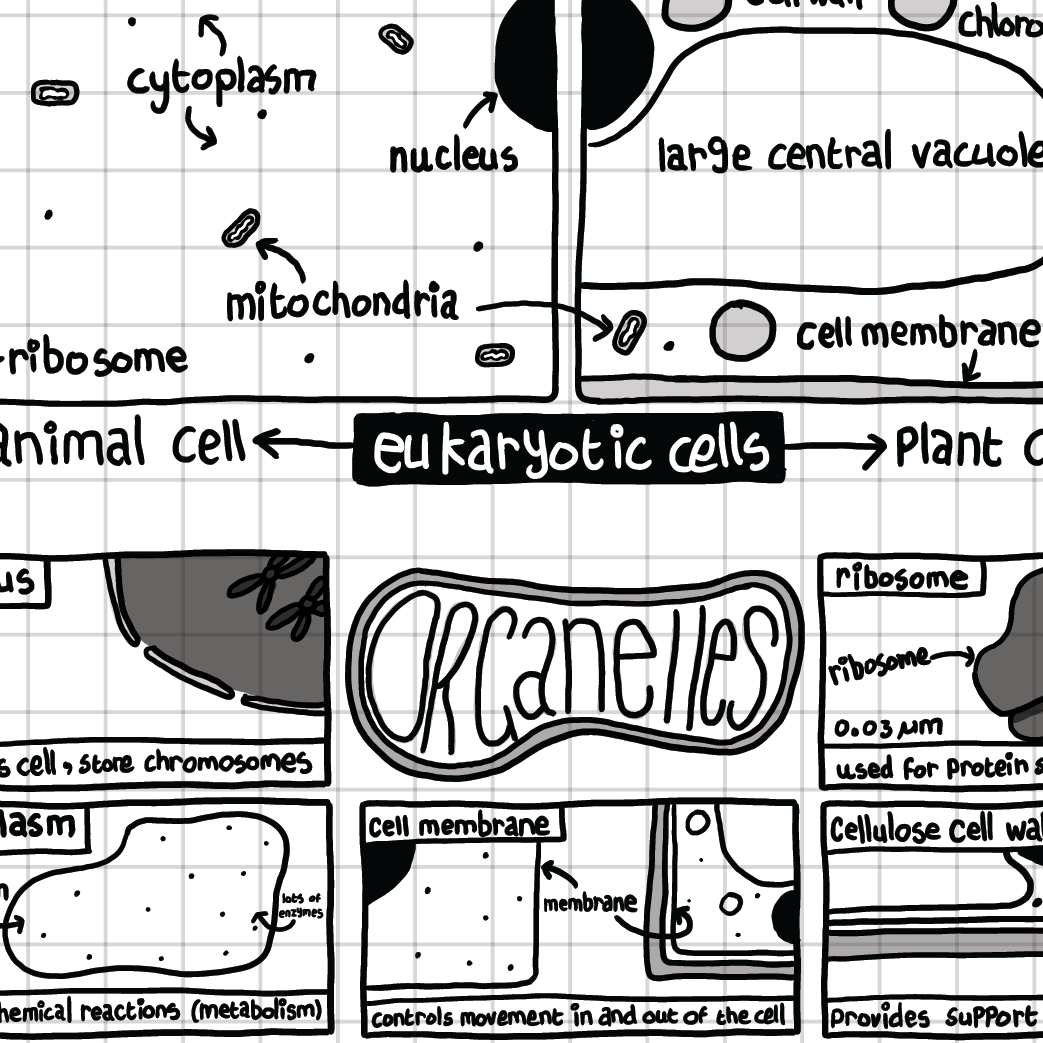 cell wall
chloro
cytoplasm
nucleus
large central vacuole
mitochondria
ribosome
cell membrane
animal cell
eukaryotic cells
Plant c
us
s cell, store chromosomes
ORGanelles
ribosome
ribosome
0.03 µm
used for Protein s
lasm
n
lots of
enzymes
hemical reactions (metabolism)
cell membrane
membrane
controls movement in and out of the cell
Cellulose cell wal
Provides support